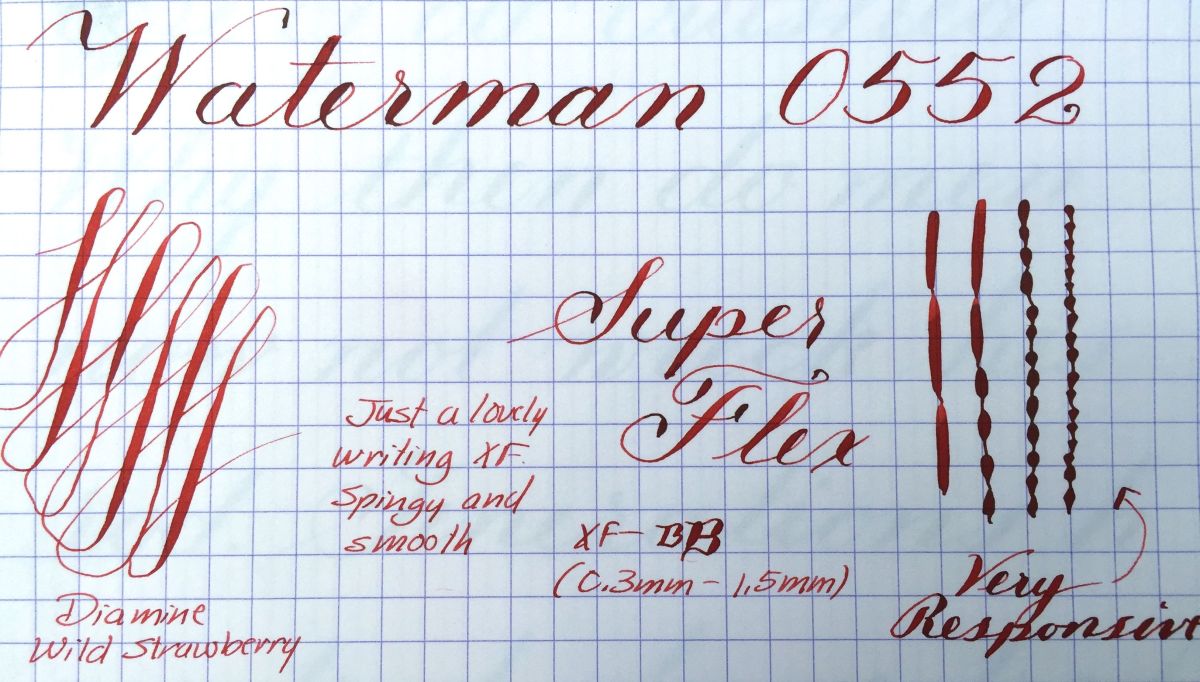 Waterman 0552
Super
Flex
Just a lovely
writing XF.
Spingy and
smooth
XF - BB
(0.3mm - 1.5mm)
Very
Responsive
Diamine
Wild Strawberry